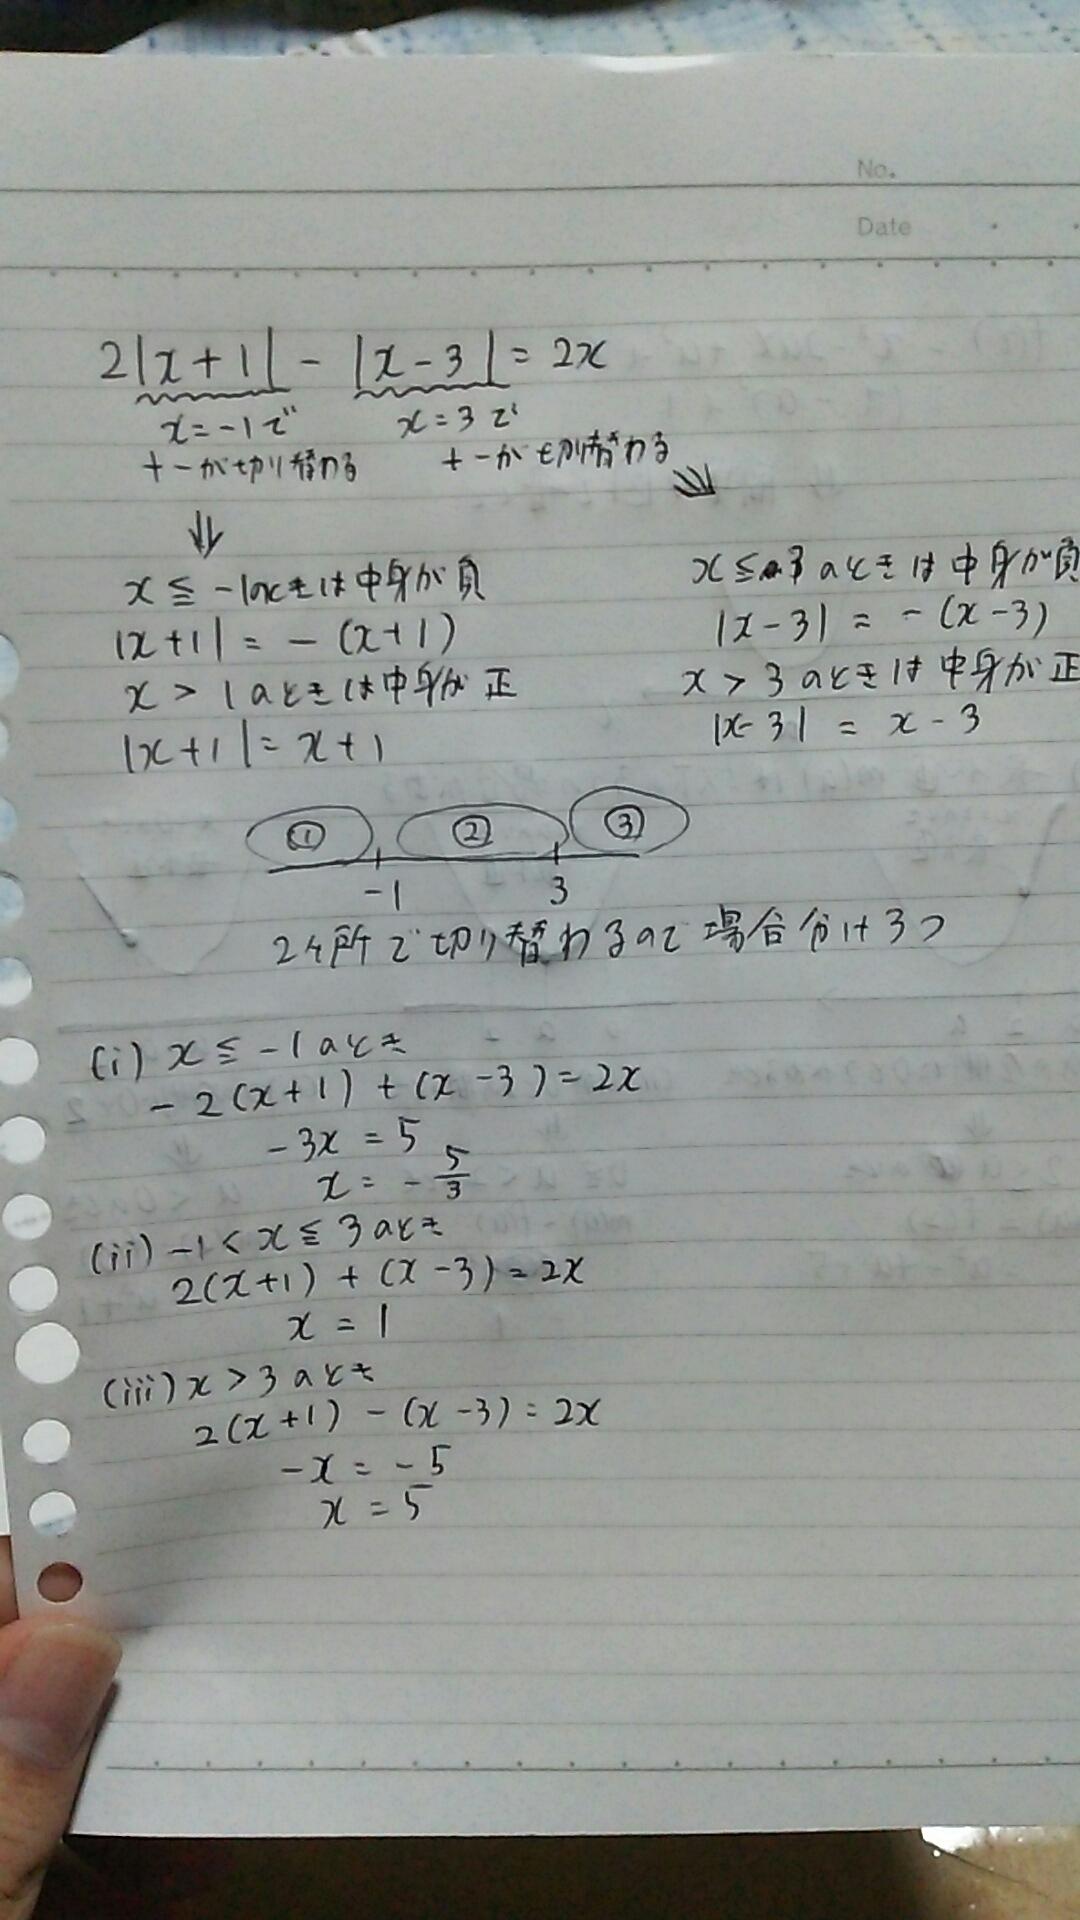 No.
Date
2|x+1| - |x-3| = 2x
x=-1で x=3で
+-が切り替わる +-が切り替わる
x≦-1のときは中身が負
|x+1| = -(x+1)
x>1のときは中身が正
|x+1| = x+1
x≦3のときは中身が負
|x-3| = -(x-3)
x>3のときは中身が正
|x-3| = x-3
① ② ③
-1 3
2ヶ所で切り替わるので場合分け3つ
(i) x≦-1のとき
-2(x+1)+(x-3)=2x
-3x=5
x=-5/3
(ii) -1<x≦3のとき
2(x+1)+(x-3)=2x
x=1
(iii) x>3のとき
2(x+1)-(x-3)=2x
-x=-5
x=5